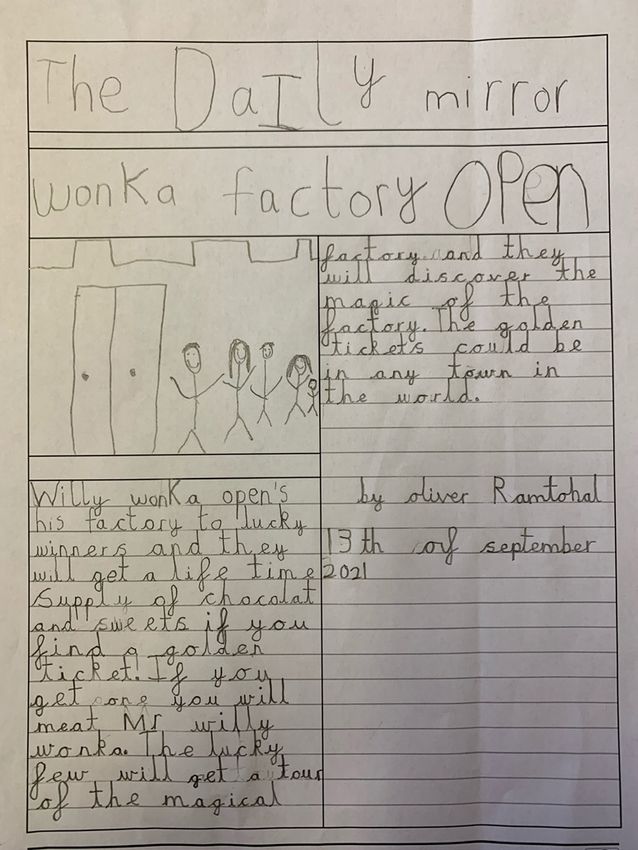 The DaILy mirror
wonKa factory OPEn
Willy wonKa open's
his factory to lucky
winners and they
will get a life time
Supply of chocolat
and sweets if you
find a golden
ticket! If you
get one you will
meat Mr willy
wonka. The lucky
few will get a tour
of the magical
factory and they
will discover the
magic of the
factory. The golden
tickets could be
in any town in
the world.
by oliver Ramtohal
13th of september
2021